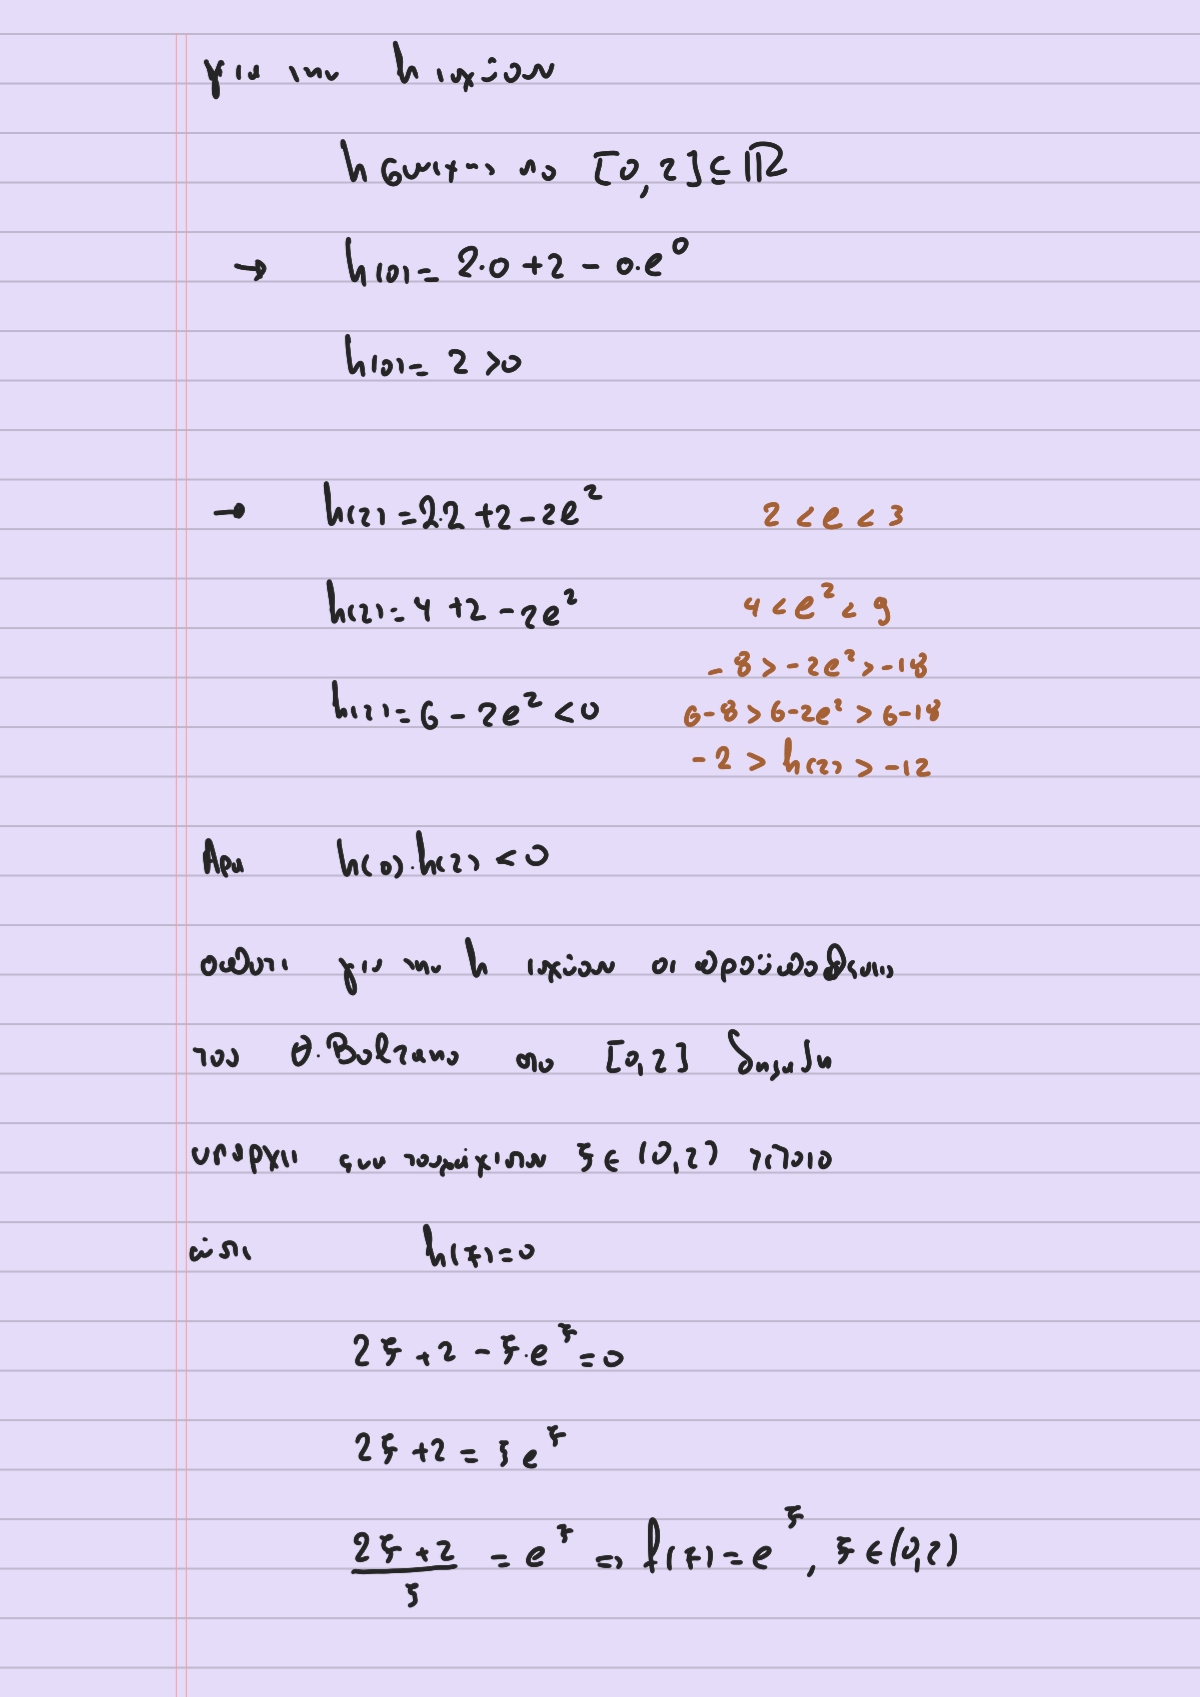 για την h ισχύουν
h συνεχης στο [0, 2] ⊆ ℝ
→ h(0) = 2·0 + 2 - 0·e⁰
h(0) = 2 > 0
→ h(2) = 2·2 + 2 - 2e² 2 < e < 3
h(2) = 4 + 2 - 2e² 4 < e² < 9
-8 > -2e² > -18
h(2) = 6 - 2e² < 0 6-8 > 6-2e² > 6-18
-2 > h(2) > -12
Αρα h(0)·h(2) < 0
οπότε για την h ισχύουν οι προϋποθέσεις
του Θ. Bolzano στο [0, 2] δηλαδη
υπαρχει ενα τουλάχιστον ξ ∈ (0, 2) τετοιο
ώστε h(ξ) = 0
2ξ + 2 - ξ·e^ξ = 0
2ξ + 2 = ξ e^ξ
(2ξ + 2)/ξ = e^ξ => f(ξ) = e^ξ, ξ ∈ (0, 2)